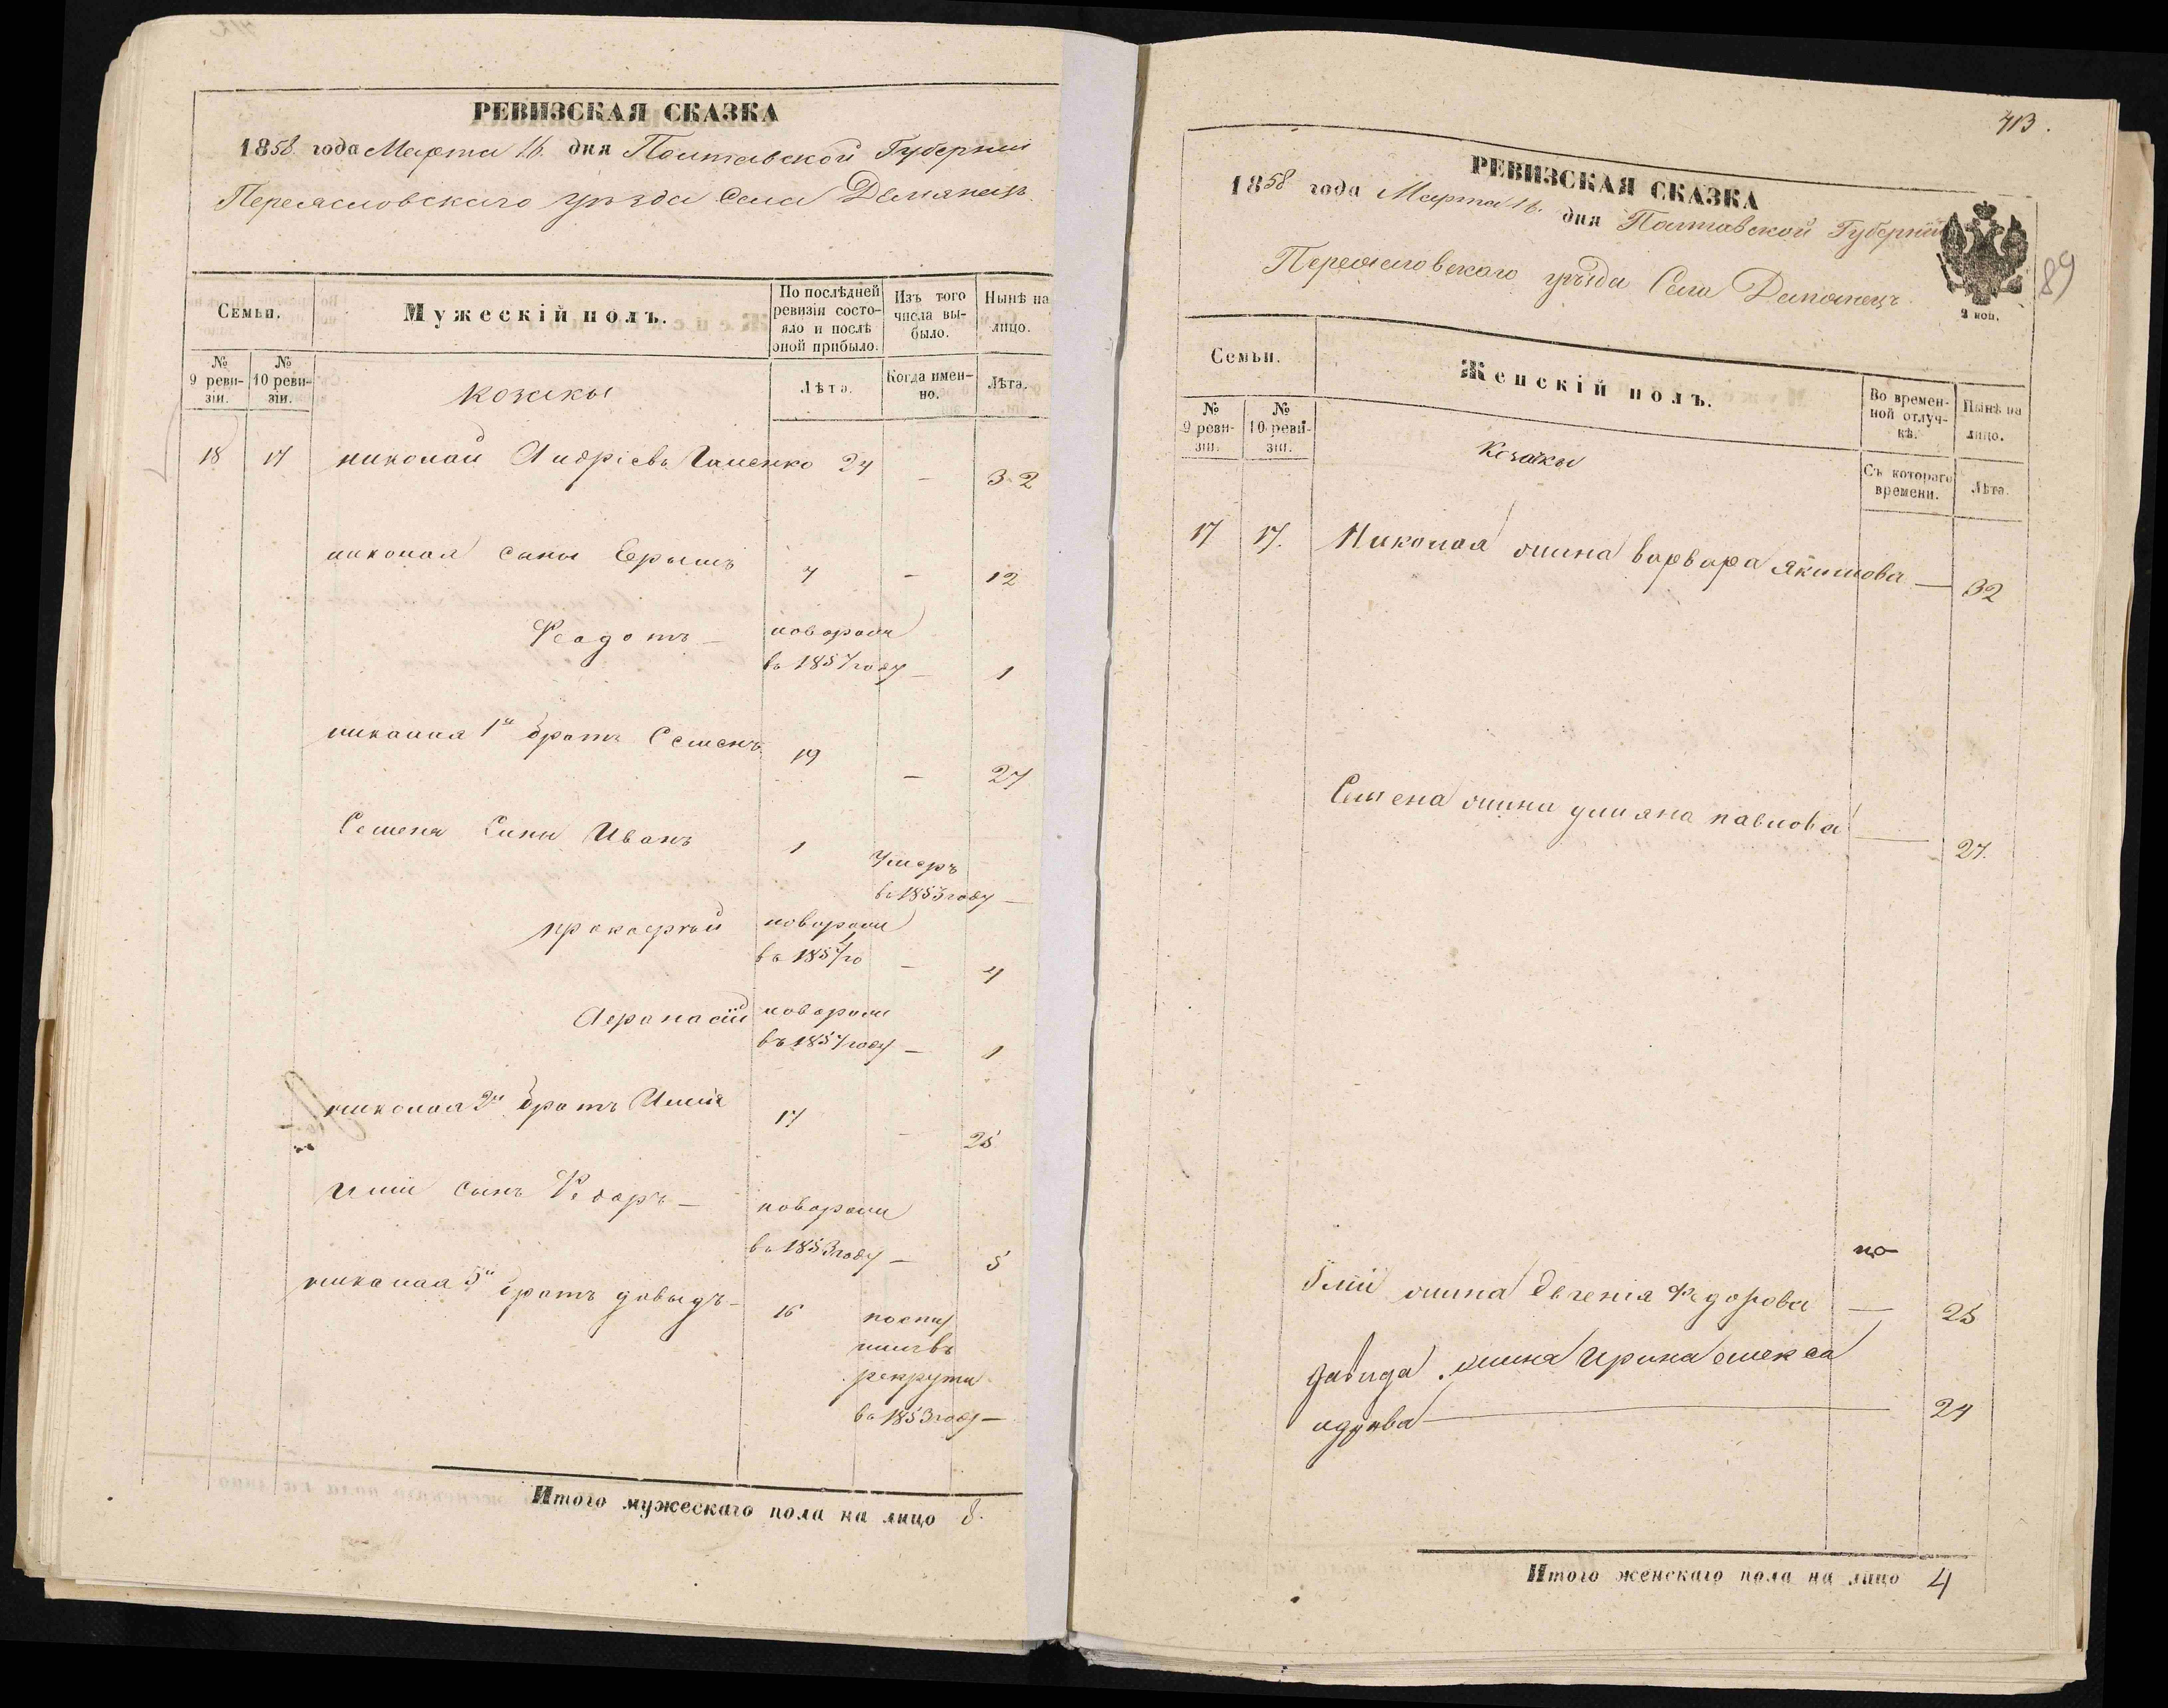 РЕВИЗСКАЯ СКАЗКА
1858 года Марта 16. дня Полтавской Губерніи
Переясловскаго уѣзда Села Демянецъ
Семьи.
Мужескій полъ.
По послѣдней ревизіи состояло и послѣ оной прибыло.
Изъ того числа выбыло.
Нынѣ на лицо.
№ 9 ревизіи.
№ 10 ревизіи.
козаки
Лѣта.
Когда именно.
Лѣта.
18 17 николай Андріевъ 24 — 32
николая сыны Ерымъ 4 — 12
Феадотъ — новорож
въ 1857 году — 1
николая 1й братъ Семенъ 19 — 27
Семена Сыны Иванъ 1 Умеръ
въ 1853 году —
прокофій новорож
въ 1854 го — 4
Афанасій новорож
въ 1857 году — 1
николая 2й братъ Илія 17 — 25
Иліи сынъ Федоръ — новорож
въ 1853 году — 5
николая 3й братъ давыдъ — 16 поступилъ въ
рекруты
въ 1853 году —
Итого мужескаго пола на лицо 8.
413.
РЕВИЗСКАЯ СКАЗКА
1858 года Марта 16. дня Полтавской Губерніи
Переясловскаго уѣзда Села Демянецъ
89
2 коп.
Семьи.
Женскій полъ.
Во временной отлучкѣ.
Нынѣ на лицо.
№ 9 ревизіи.
№ 10 ревизіи.
Козаки
Съ котораго времени.
Лѣта.
17 17. Николая жина варвара якимова — 32
Семена жина улияна павлова — 27.
Иліи жина Евгенія Федорова — 25
Давида жина Ирина алекса
ндрова — 24
Итого женскаго пола на лицо 4